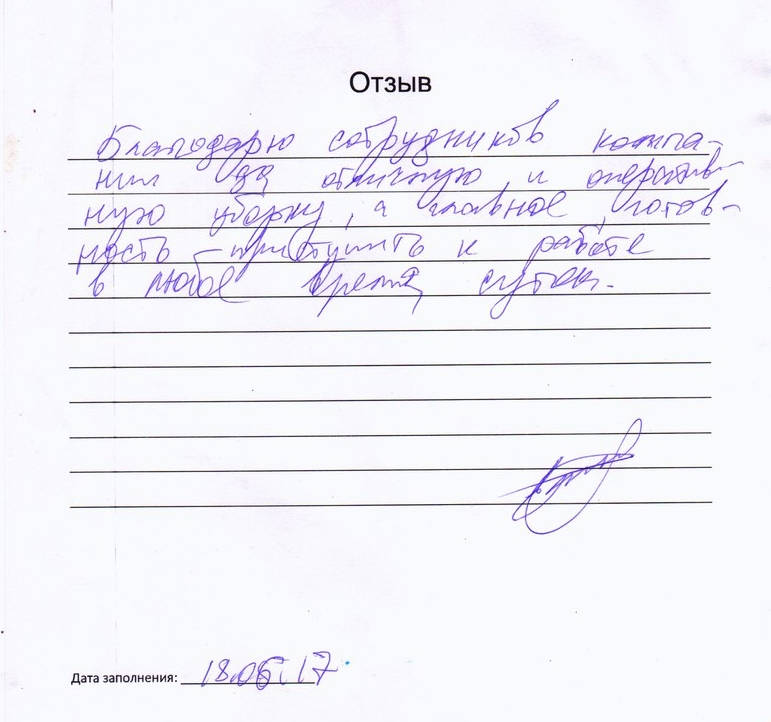 Отзыв
Благодарю сотрудников компа-
нии за отличную и оператив-
ную уборку, а главное, готов-
ность приступить к работе
в любое время суток.
Дата заполнения: 18.06.17